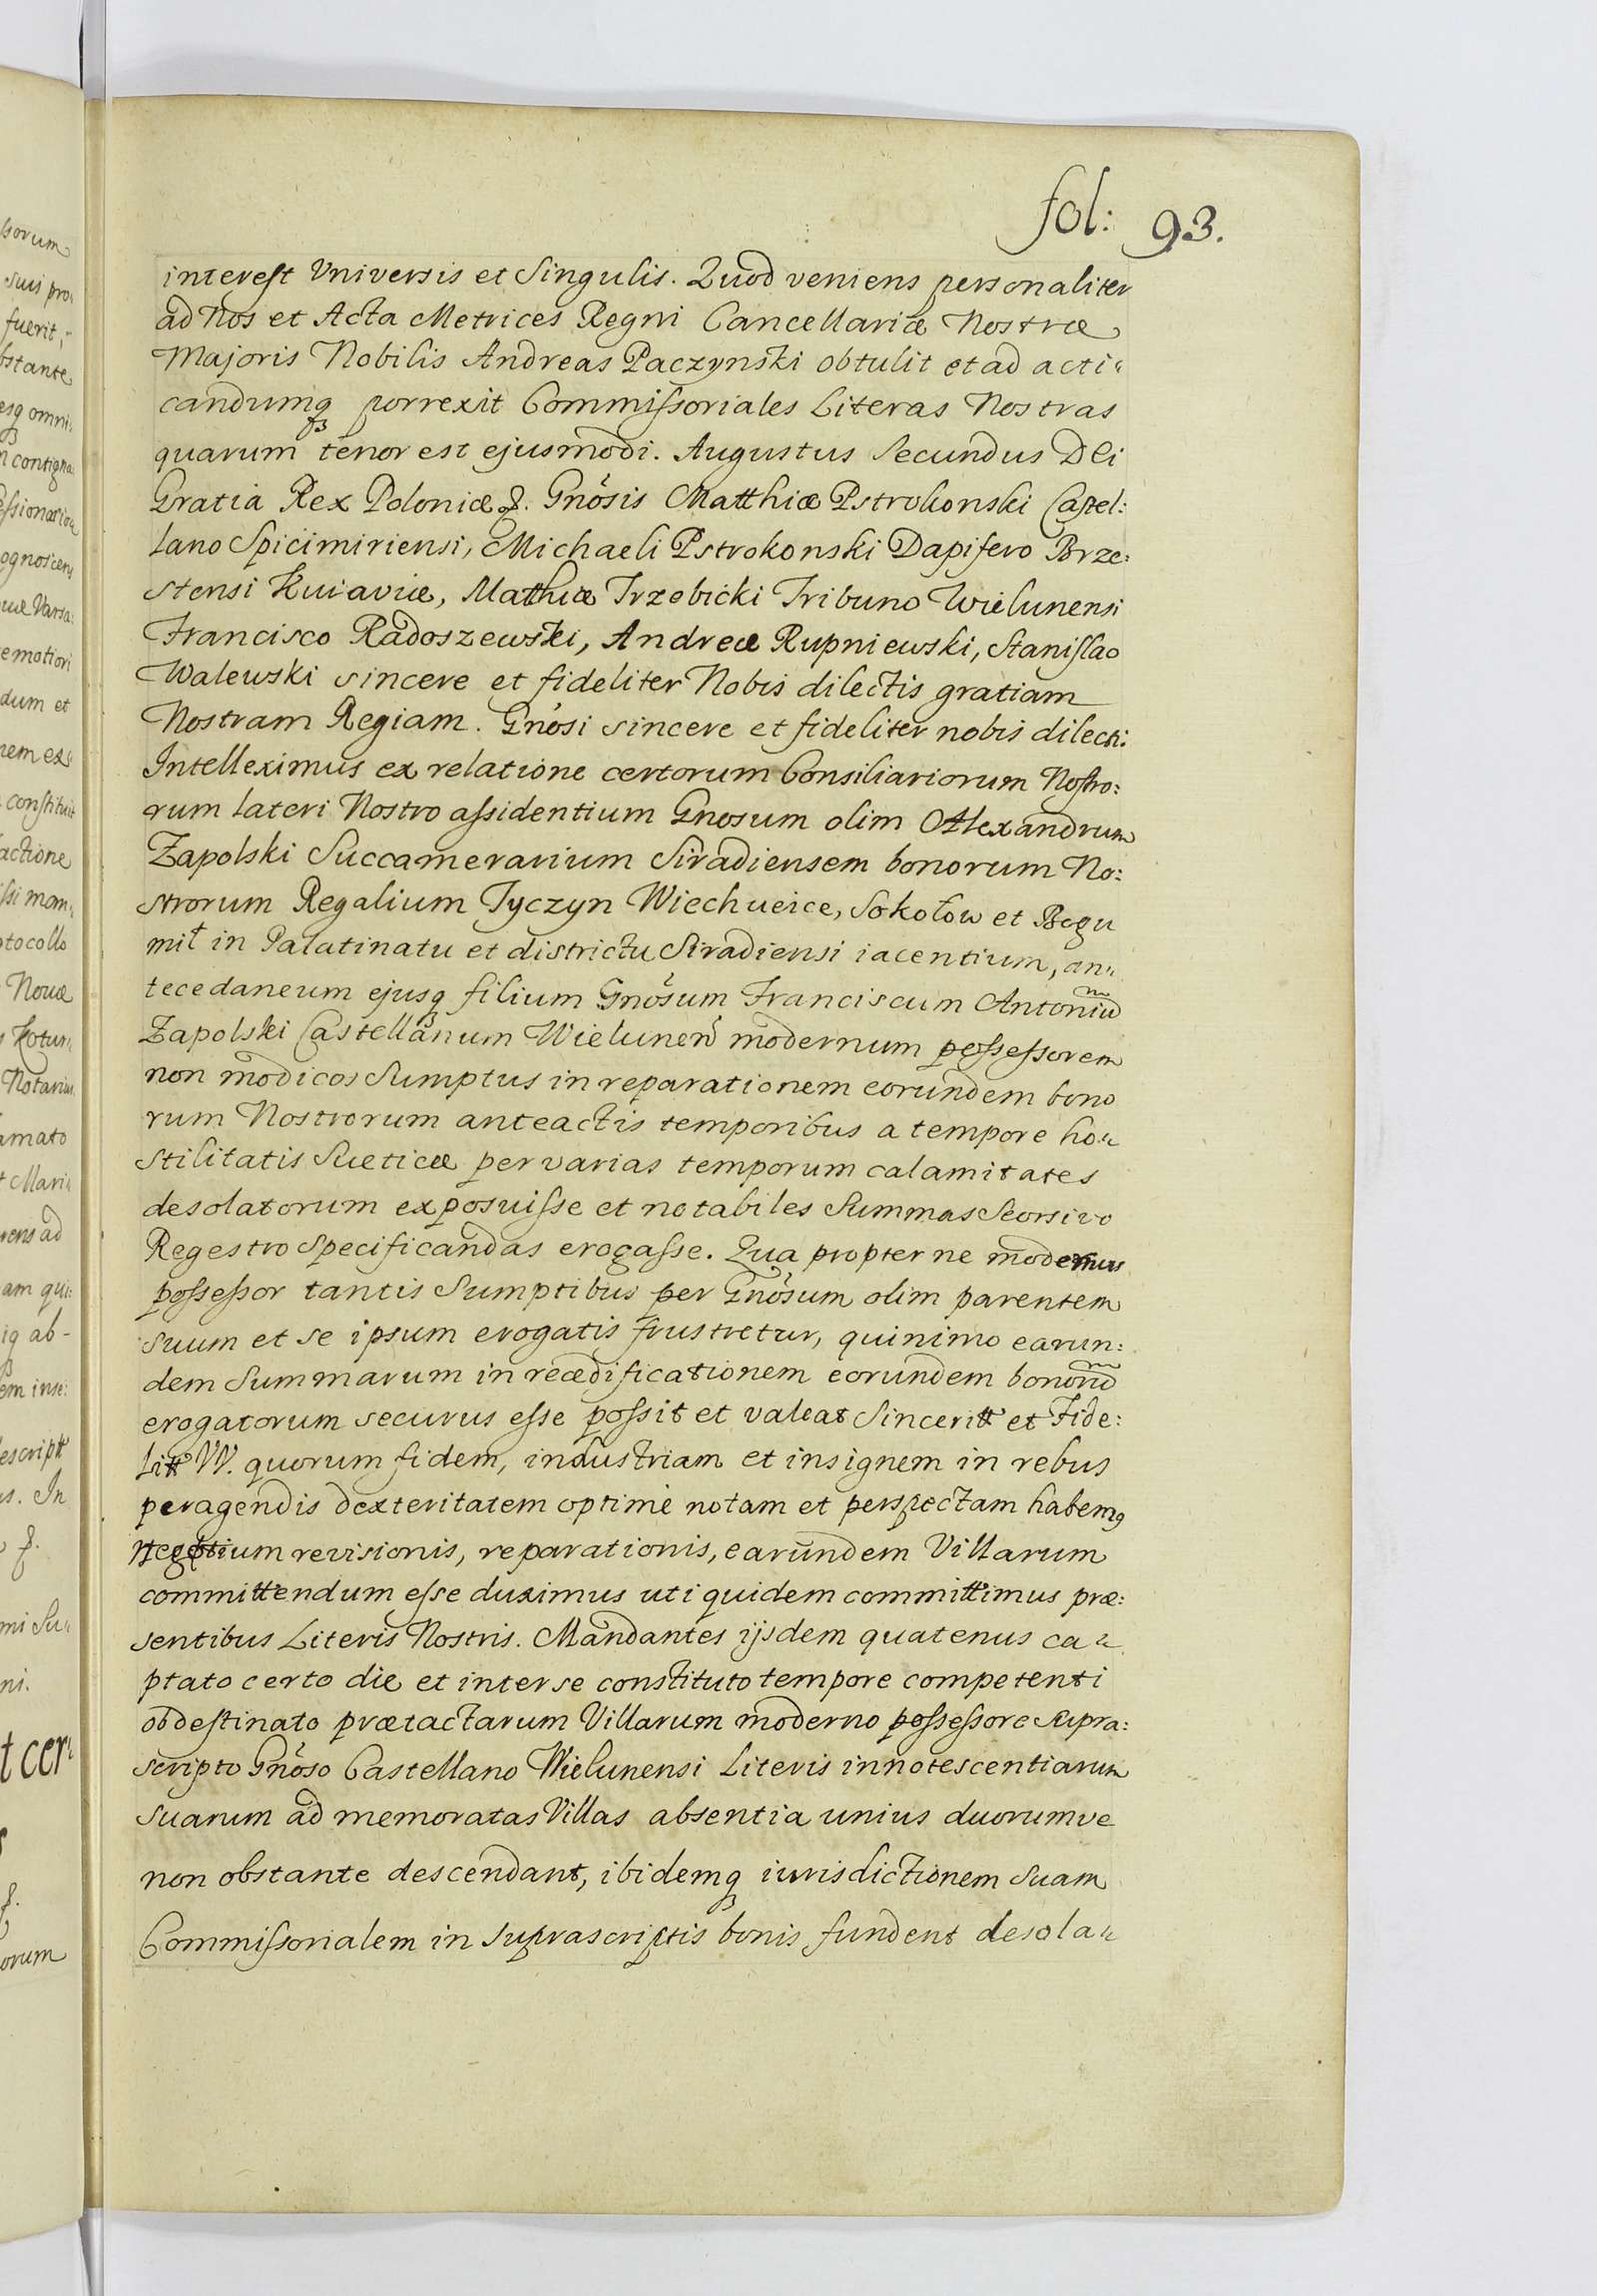 fol: 93.
interest Vniversis et Singulis. Quod veniens personaliter
ad Nos et Acta Metrices Regni Cancellariæ Nostræ
Majoris Nobilis Andreas Paczynski obtulit et ad acti„
candumq₃ porrexit Commissoriales Literas Nostras
quarum tenor est ejusmodi. Augustus Secundus Dei
Gratia Rex Poloniæ &. Gnosis Matthiæ Pstrokonski Castel:
lano Spicimiriensi, Michaeli Pstrokonski Dapifero Brze:
stensi Kuiaviæ, Mathiæ Trzebicki Tribuno Wielunensi
Francisco Radoszewski, Andreæ Rupniewski, Stanislao
Walewski sincere et fideliter Nobis dilectis gratiam
Nostram Regiam. Gnosi sincere et fideliter nobis dilecti:
Intelleximus ex relatione certorum Consiliariorum Nostro:
rum lateri Nostro assidentium Gnosum olim Alexandrum
Zapolski Succamerarium Siradiensem bonorum No:
strorum Regalium Tyczyn Wiechucice, Sokołow et Bogu
mił in Palatinatu et districtu Siradiensi iacentium, an„
tecedaneum ejusq₃ filium Gnosum Franciscum Antoniu̅
Zapolski Castellanum Wielunen̅ modernum possessorem
non modicos Sumptus in reparationem eorundem bono
rum Nostrorum anteactis temporibus a tempore ho„
stilitatis Sueticæ per varias temporum calamitates
desolatorum exposuisse et notabiles Summas Seorsivo
Regestro Specificandas erogasse. Qua propter ne modernus
possessor tantis Sumptibus per Gnosum olim parentem
suum et se ipsum erogatis frustretur, quinimo earun:
dem Summarum in reædificationem eorundem bonoru̅
erogatorum securus esse possit et valeat Sinceritt et Fide:
litt VV. quorum fidem, industriam et insignem in rebus
peragendis dexteritatem optime notam et perspectam habemꝰ
Negotium revisionis, reparationis, earundem Villarum
committendum esse duximus uti quidem committimus præ:
sentibus Literis Nostris. Mandantes ijsdem quatenus ca„
ptato certo die et inter se constituto tempore competenti
obdestinato prætactarum Villarum moderno possessore supra:
scripto Gnoso Castellano Wielunensi Literis innotescentiarum
suarum ad memoratas Villas absentia unius duorumve
non obstante descendant, ibidemq₃ iurisdictionem suam
Commissorialem in suprascriptis bonis fundent desola„